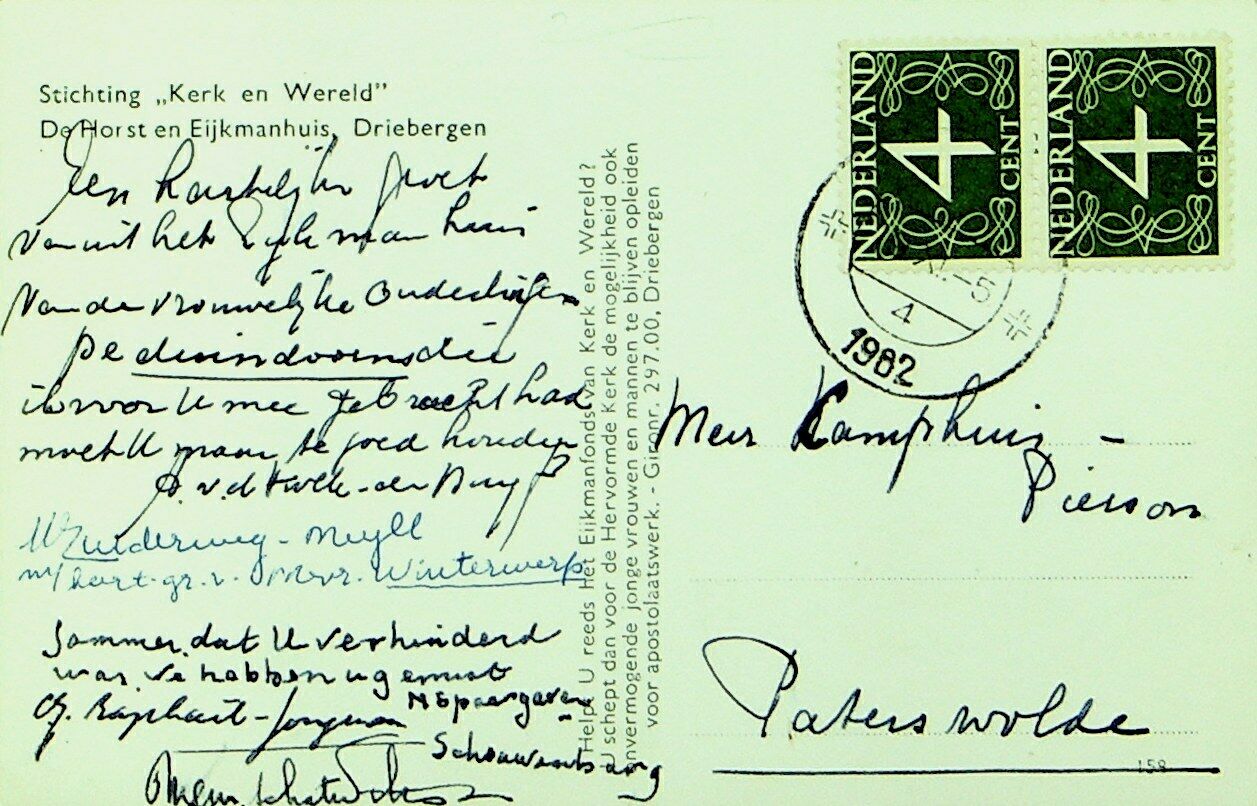 Stichting „Kerk en Wereld”
De Horst en Eijkmanhuis, Driebergen
Een hartelijke groet
vanuit het Eykmanhuis
van de vrouwelijke Ouderlingen
De duindoorns die
ik voor U mee gebracht had
moet U maar te goed houden
W Zuiderweg - Meyll
m/ hart. gr. v. Mevr. Winterwerp
Jammer, dat U verhinderd
was. We hebben u gemist
Raphaët - Jongman
N Spaargaren
Schouwenb
Helpt U reeds het Eijkmanfonds van Kerk en Wereld?
U schept dan voor de Hervormde Kerk de mogelijkheid ook
onvermogende jonge vrouwen en mannen te blijven opleiden
voor apostolaatswerk. - Gironr. 297.00, Driebergen
NEDERLAND 4 CENT
NEDERLAND 4 CENT
-5
4
1962
Mevr Kamphuis -
Pierson
Paterswolde
158